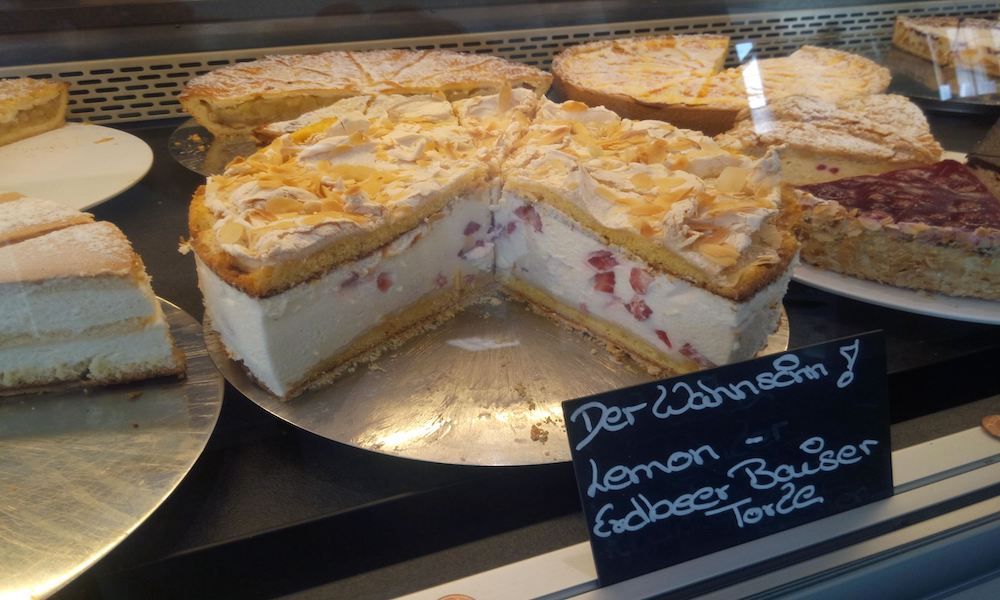 Der Wahnsinn!
Lemon -
Erdbeer Baiser
Torte